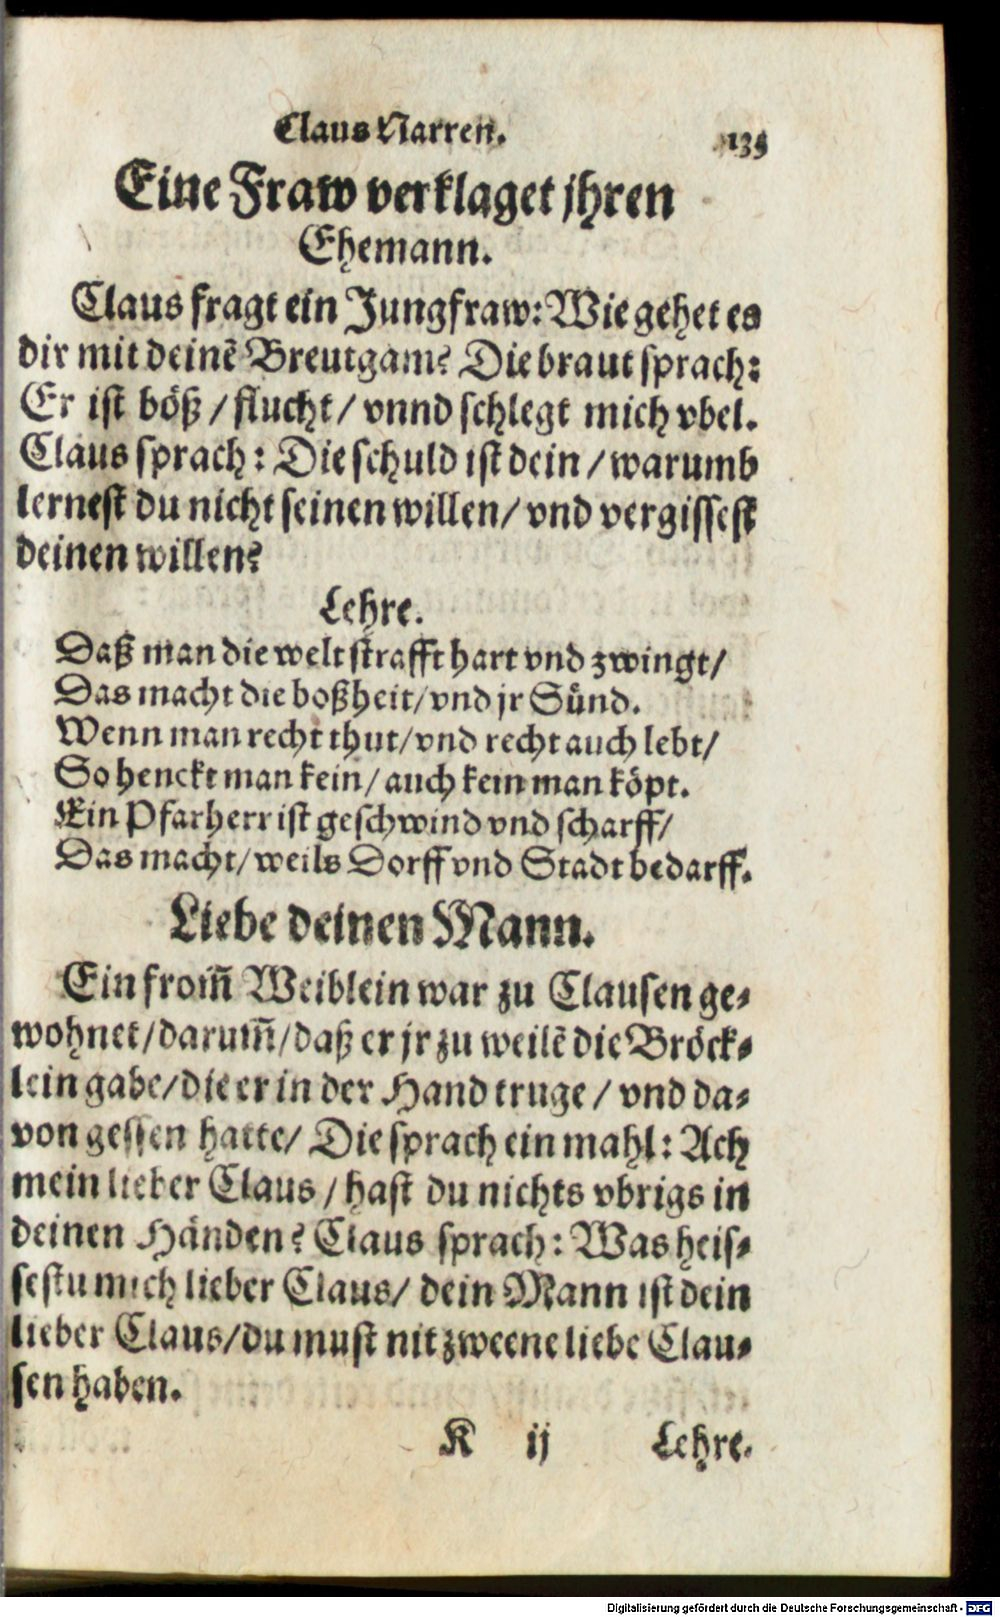 Claus Narren. 135
Eine Fraw verklaget jhren
Ehemann.
Claus fragt ein Jungfraw: Wie gehet es
dir mit deinē Breutgam? Die braut sprach:
Er ist böß / flucht / vnnd schlegt mich vbel.
Claus sprach: Die schuld ist dein / warumb
lernest du nicht seinen willen / vnd vergissest
deinen willen?
Lehre.
Daß man die welt strafft hart vnd zwingt /
Das macht die boßheit / vnd jr Sünd.
Wenn man recht thut / vnd recht auch lebt /
So henckt man kein / auch kein man köpt.
Ein Pfarherr ist geschwind vnd scharff /
Das macht / weils Dorff vnd Stadt bedarff.
Liebe deinen Mann.
Ein from̄ Weiblein war zu Clausen ge-
wohnet / darum̄ / daß er jr zu weilē die Bröck-
lein gabe / die er in der Hand truge / vnd da-
von gessen hatte / Die sprach ein mahl: Ach
mein lieber Claus / hast du nichts vbrigs in
deinen Händen? Claus sprach: Was heis-
sestu mich lieber Claus / dein Mann ist dein
lieber Claus / du must nit zweene liebe Clau-
sen haben.
K ij Lehre.
Digitalisierung gefördert durch die Deutsche Forschungsgemeinschaft - DFG